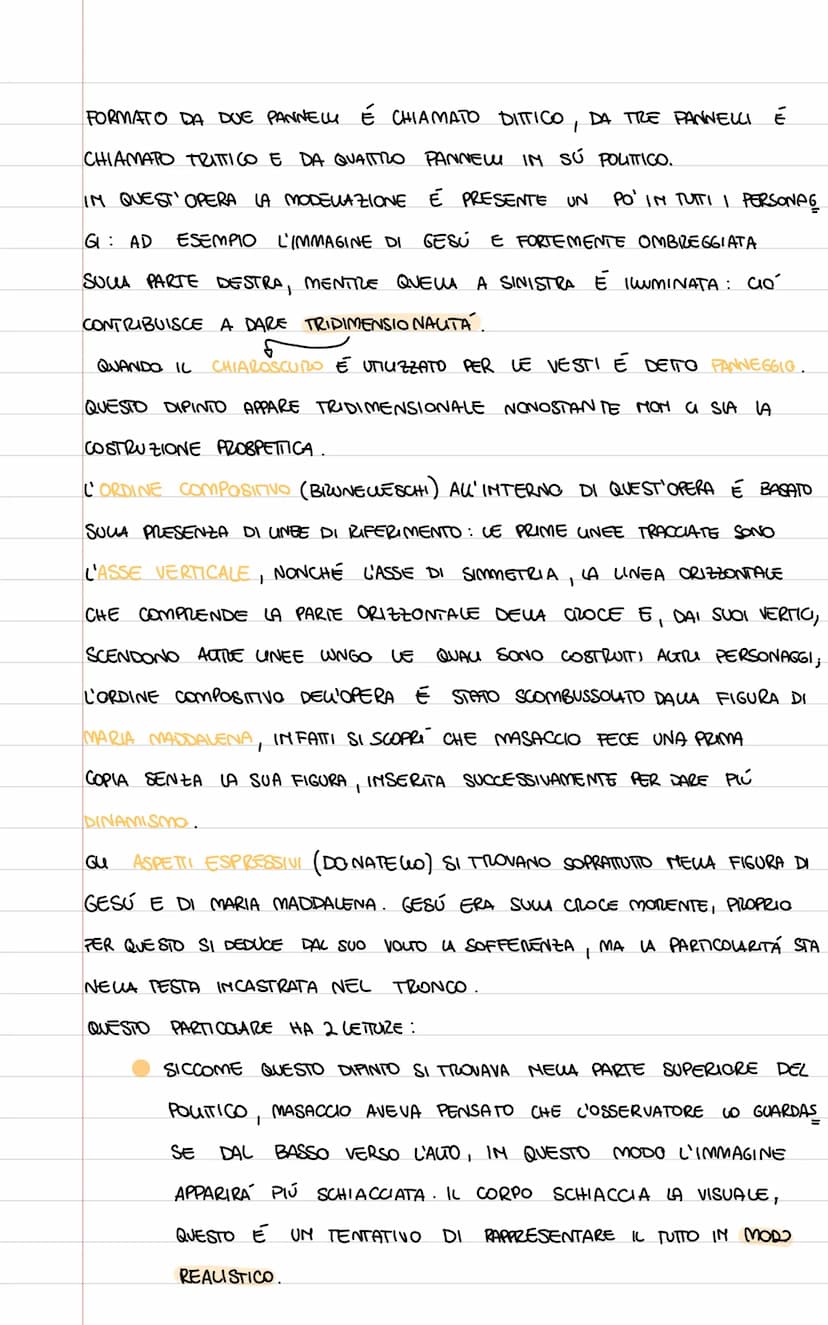 FORMATO DA DUE PANNELLI É CHIAMATO DITTICO, DA TRE PANNELLI É
CHIAMATO TRITTICO E DA QUATTRO PANNELLI IN SÚ POLITICO.
IN QUEST'OPERA LA MODELLAZIONE É PRESENTE UN PO' IN TUTTI I PERSONAG=
GI: AD ESEMPIO L'IMMAGINE DI GESÚ E FORTEMENTE OMBREGGIATA
SULLA PARTE DESTRA, MENTRE QUELLA A SINISTRA É ILLUMINATA: CIÓ
CONTRIBUISCE A DARE TRIDIMENSIONALITÁ.
QUANDO IL CHIAROSCURO É UTILIZZATO PER LE VESTI É DETTO PANNEGGIO.
QUESTO DIPINTO APPARE TRIDIMENSIONALE NONOSTANTE NON CI SIA LA
COSTRUZIONE PROSPETTICA.
L'ORDINE COMPOSITIVO (BRUNELLESCHI) ALL'INTERNO DI QUEST'OPERA É BASATO
SULLA PRESENZA DI LINEE DI RIFERIMENTO: LE PRIME LINEE TRACCIATE SONO
L'ASSE VERTICALE, NONCHÉ L'ASSE DI SIMMETRIA, LA LINEA ORIZZONTALE
CHE COMPRENDE LA PARTE ORIZZONTALE DELLA CROCE E, DAI SUOI VERTICI,
SCENDONO ALTRE LINEE LUNGO LE QUALI SONO COSTRUITI ALTRI PERSONAGGI;
L'ORDINE COMPOSITIVO DELL'OPERA É STATO SCOMBUSSOLATO DALLA FIGURA DI
MARIA MADDALENA, INFATTI SI SCOPRÍ CHE MASACCIO FECE UNA PRIMA
COPIA SENZA LA SUA FIGURA, INSERITA SUCCESSIVAMENTE PER DARE PIÚ
DINAMISMO.
GLI ASPETTI ESPRESSIVI (DONATELLO) SI TROVANO SOPRATTUTTO NELLA FIGURA DI
GESÚ E DI MARIA MADDALENA. GESÚ ERA SULLA CROCE MORENTE, PROPRIO
PER QUESTO SI DEDUCE DAL SUO VOLTO LA SOFFERENZA, MA LA PARTICOLARITÁ STA
NELLA TESTA INCASTRATA NEL TRONCO.
QUESTO PARTICOLARE HA 2 LETTURE:
SICCOME QUESTO DIPINTO SI TROVAVA NELLA PARTE SUPERIORE DEL
POLITICO, MASACCIO AVEVA PENSATO CHE L'OSSERVATORE LO GUARDAS=
SE DAL BASSO VERSO L'ALTO, IN QUESTO MODO L'IMMAGINE
APPARIRÁ PIÚ SCHIACCIATA. IL CORPO SCHIACCIA LA VISUALE,
QUESTO É UN TENTATIVO DI RAPPRESENTARE IL TUTTO IN MODO
REALISTICO.